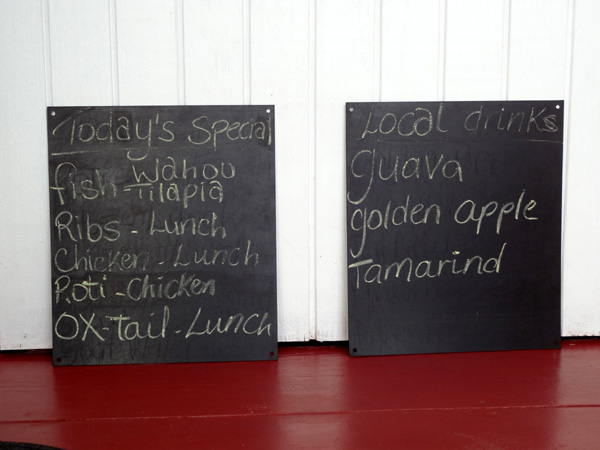 Today's Special
fish - Wahoo
Tilapia
Ribs - Lunch
Chicken - Lunch
Roti - Chicken
OX-Tail - Lunch
Local drinks
guava
golden apple
Tamarind